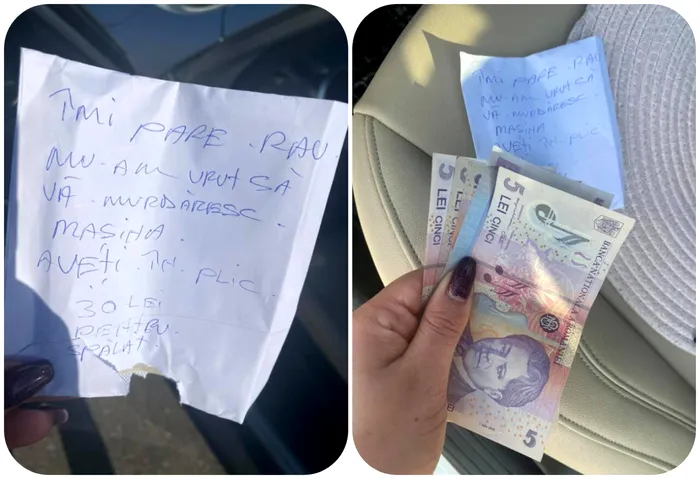 ÎMI PARE RAU.
NU-AM VRUT SĂ
VĂ MURDĂRESC.
MAȘINA.
AVEȚI ÎN PLIC.
30 LEI
PENTRU.
SPĂLAT.
ÎMI PARE RAU
NU-AM VRUT SĂ
VĂ MURDĂRESC.
MAȘINA
AVEȚI ÎN PLIC
5 LEI CINCI
LEI CINCI
5 LEI CINCI
BANCA NAȚIONALĂ A ROMÂNIEI
5